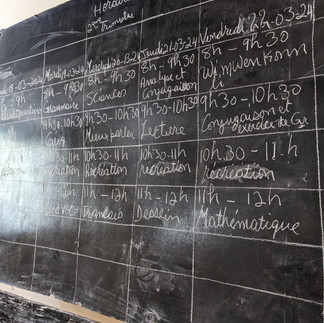 Horaire
2ème Trimestre
18-03-2024 Mardi 19-03-2024 Mercredi 20-13-2024 Jeudi 21-03-24 Vendredi 22-03-24
9h 8h - 9h30 8h - 9h30 8h - 9h30 8h - 9h30
Grammaire Sciences Analyse et
Conjugaison
9h30-10h30 9h30-10h30 9h30-10h30 9h30-10h30
Mieux parler Lecture Conjugaison et
10h30-11h 10h30-11h 10h30-11h 10h30-11h
récréation Récréation récréation récréation
11h - 12h 11h - 12h 11h - 12h
Français Dessein Mathématique